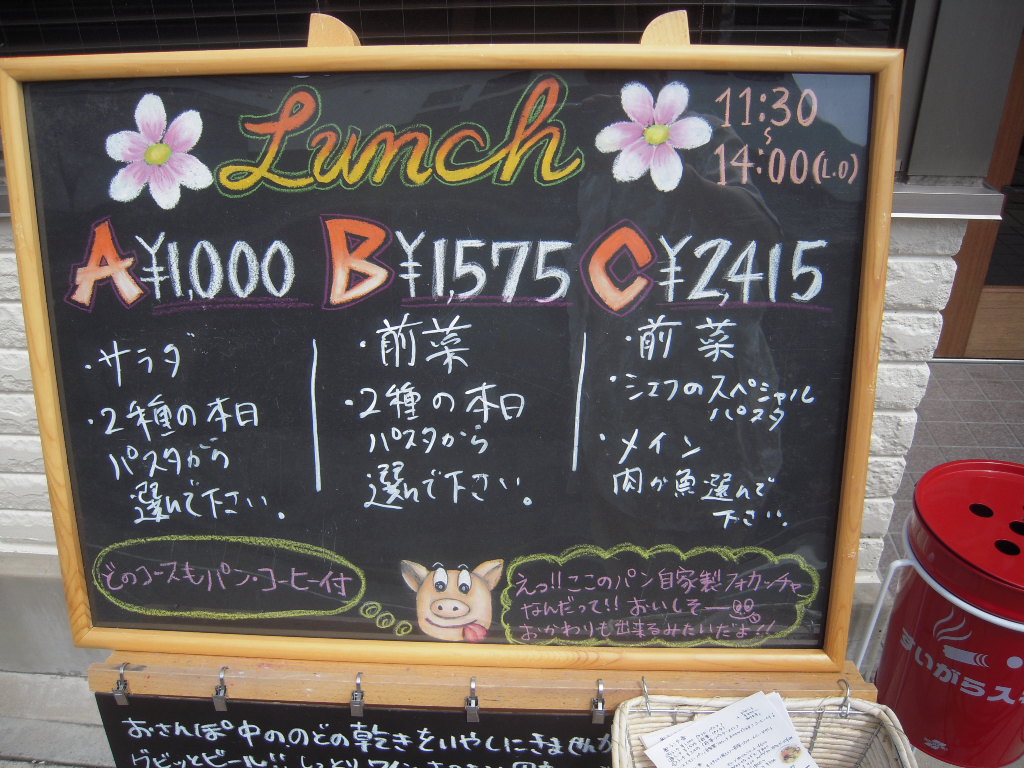 Lunch
11:30
~
14:00(L.O)
A ¥1,000
・サラダ
・2種の本日
パスタから
選んで下さい。
B ¥1,575
・前菜
・2種の本日
パスタから
選んで下さい。
C ¥2,415
・前菜
・シェフのスペシャル
パスタ
・メイン
肉か魚選んで
下さい。
どのコースもパン・コーヒー付
えっ!!ここのパン自家製フォカッチャ
なんだって!! おいしそー
おかわりも出来るみたいだよ!!
おさんぽ中の、のどの乾きをいやしにきませんか
グビッとビール!!
すいがら入